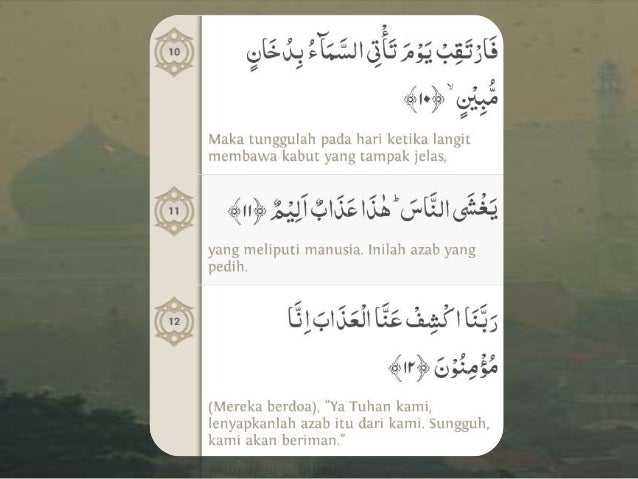 10
فَارْتَقِبْ يَوْمَ تَأْتِى السَّمَاۤءُ بِدُخَانٍ
مُّبِيْنٍ ۙ ﴿١٠﴾
Maka tunggulah pada hari ketika langit
membawa kabut yang tampak jelas,
11
يَغْشَى النَّاسَ ۗ هٰذَا عَذَابٌ اَلِيْمٌ ﴿١١﴾
yang meliputi manusia. Inilah azab yang
pedih.
12
رَبَّنَا اكْشِفْ عَنَّا الْعَذَابَ اِنَّا
مُؤْمِنُوْنَ ﴿١٢﴾
(Mereka berdoa), "Ya Tuhan kami,
lenyapkanlah azab itu dari kami. Sungguh,
kami akan beriman."